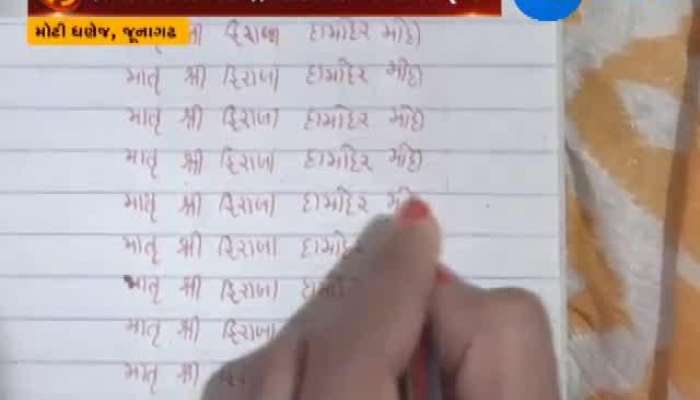 મોટી ધણેજ, જૂનાગઢ
હિરાબા દામોદર મોદી
માતૃ શ્રી હિરાબા દામોદર મોદી
માતૃ શ્રી હિરાબા દામોદર મોદી
માતૃ શ્રી હિરાબા દામોદર મોદી
માતૃ શ્રી હિરાબા દામોદર
માતૃ શ્રી હિરાબા દામોદર
માતૃ શ્રી હિરાબા
માતૃ શ્રી હિરાબા
માતૃ શ્રી